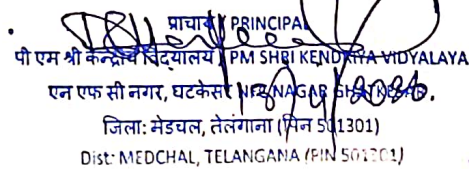 प्राचार्य / PRINCIPAL
पी एम श्री केन्द्रीय विद्यालय / PM SHRI KENDRIYA VIDYALAYA
एन एफ सी नगर, घटकेसर / NFC NAGAR GHATKESAR
जिला: मेडचल, तेलंगाना (पिन 501301)
Dist: MEDCHAL, TELANGANA (PIN 501301)